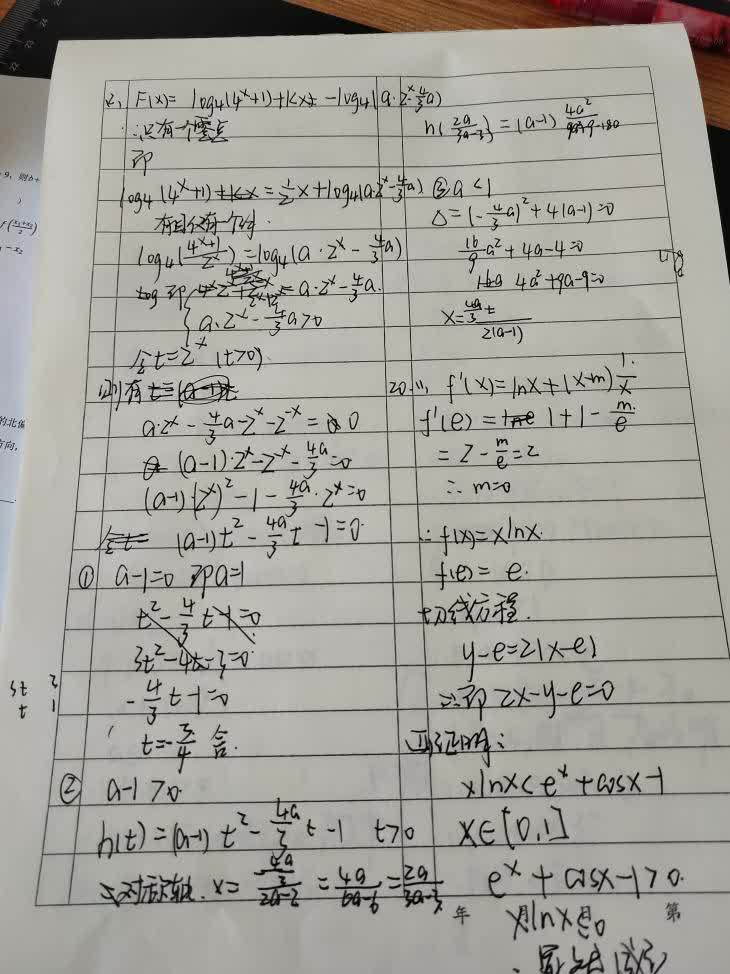 2, F(x)= log₄(4ˣ+1)+kx - log₄(a·2ˣ-4/3a)
∵只有一个零点
即
log₄(4ˣ+1)+kx=1/2x+log₄(a·2ˣ-4/3a)
有且仅有一个时.
log₄(4ˣ+1/2ˣ)=log₄(a·2ˣ-4/3a)
即
=a·2ˣ-4/3a.
a·2ˣ-4/3a>0
令t=2ˣ (t>0)
则有
a·2ˣ-4/3a-2ˣ-2⁻ˣ=0
(a-1)·2ˣ-2⁻ˣ-4a/3=0
(a-1)(2ˣ)²-1-4a/3·2ˣ=0
(a-1)t²-4a/3t-1=0
① a-1=0 即a=1
t²-4/3t-1=0
3t²-4t-3=0
-4/3t-1=0
t=-3/4 舍.
② a-1>0
h(t)=(a-1)t²-4a/3t-1 t>0
∴对称轴. x=(4a/3)/(2a-2)=4a/(6a-6)=2a/(3a-3)
h(2a/3a-3)=(a-1)4a²
③a<1
Δ=(-4/3a)²+4(a-1)=0
16/9a²+4a-4=0
4a²+9a-9=0
x=
2(a-1)
20.(1), f'(x)=lnx+(x-m)1/x
f'(e)=1+1-m/e
=2-m/e=2
∴m=0
∴f(x)=xlnx.
f(e)=e.
切线方程.
y-e=2(x-e)
即2x-y-e=0
证明:
xlnx<eˣ+cosx-1
x∈[0,1]
eˣ+cosx-1>0.
年
第